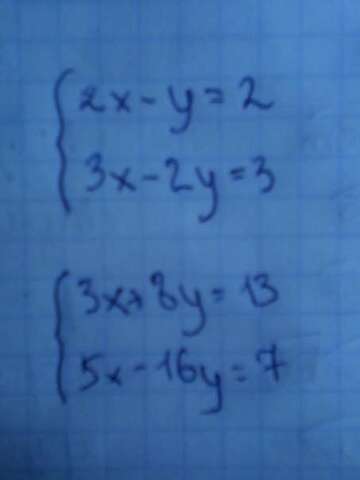 2x - y = 2
3x - 2y = 3
3x + 8y = 13
5x - 16y = 7